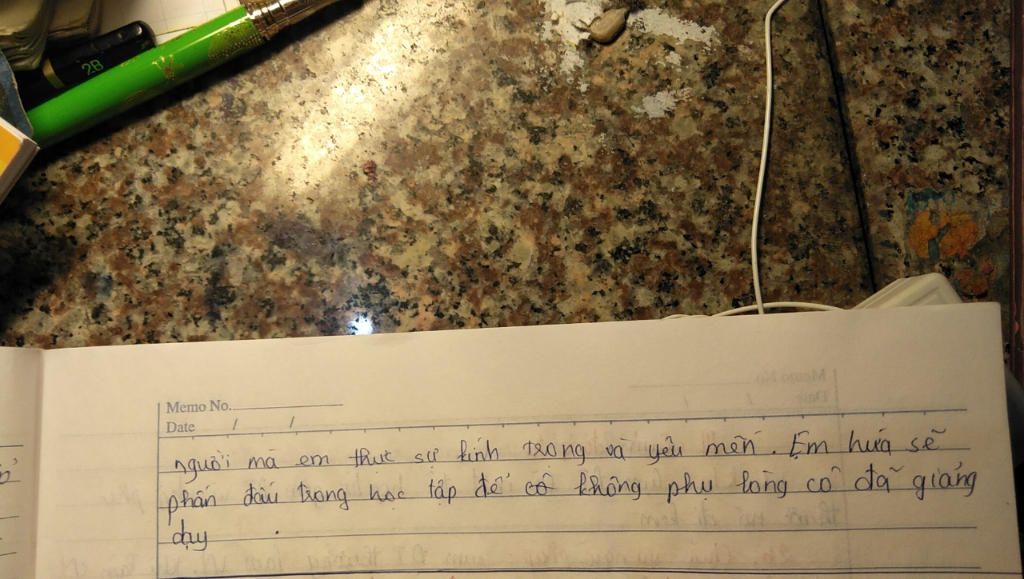 2B
Memo No.
Date / /
người mà em thực sự kính trọng và yêu mến. Em hứa sẽ
phấn đấu trong học tập để cô không phụ lòng cô đã giảng
dạy .